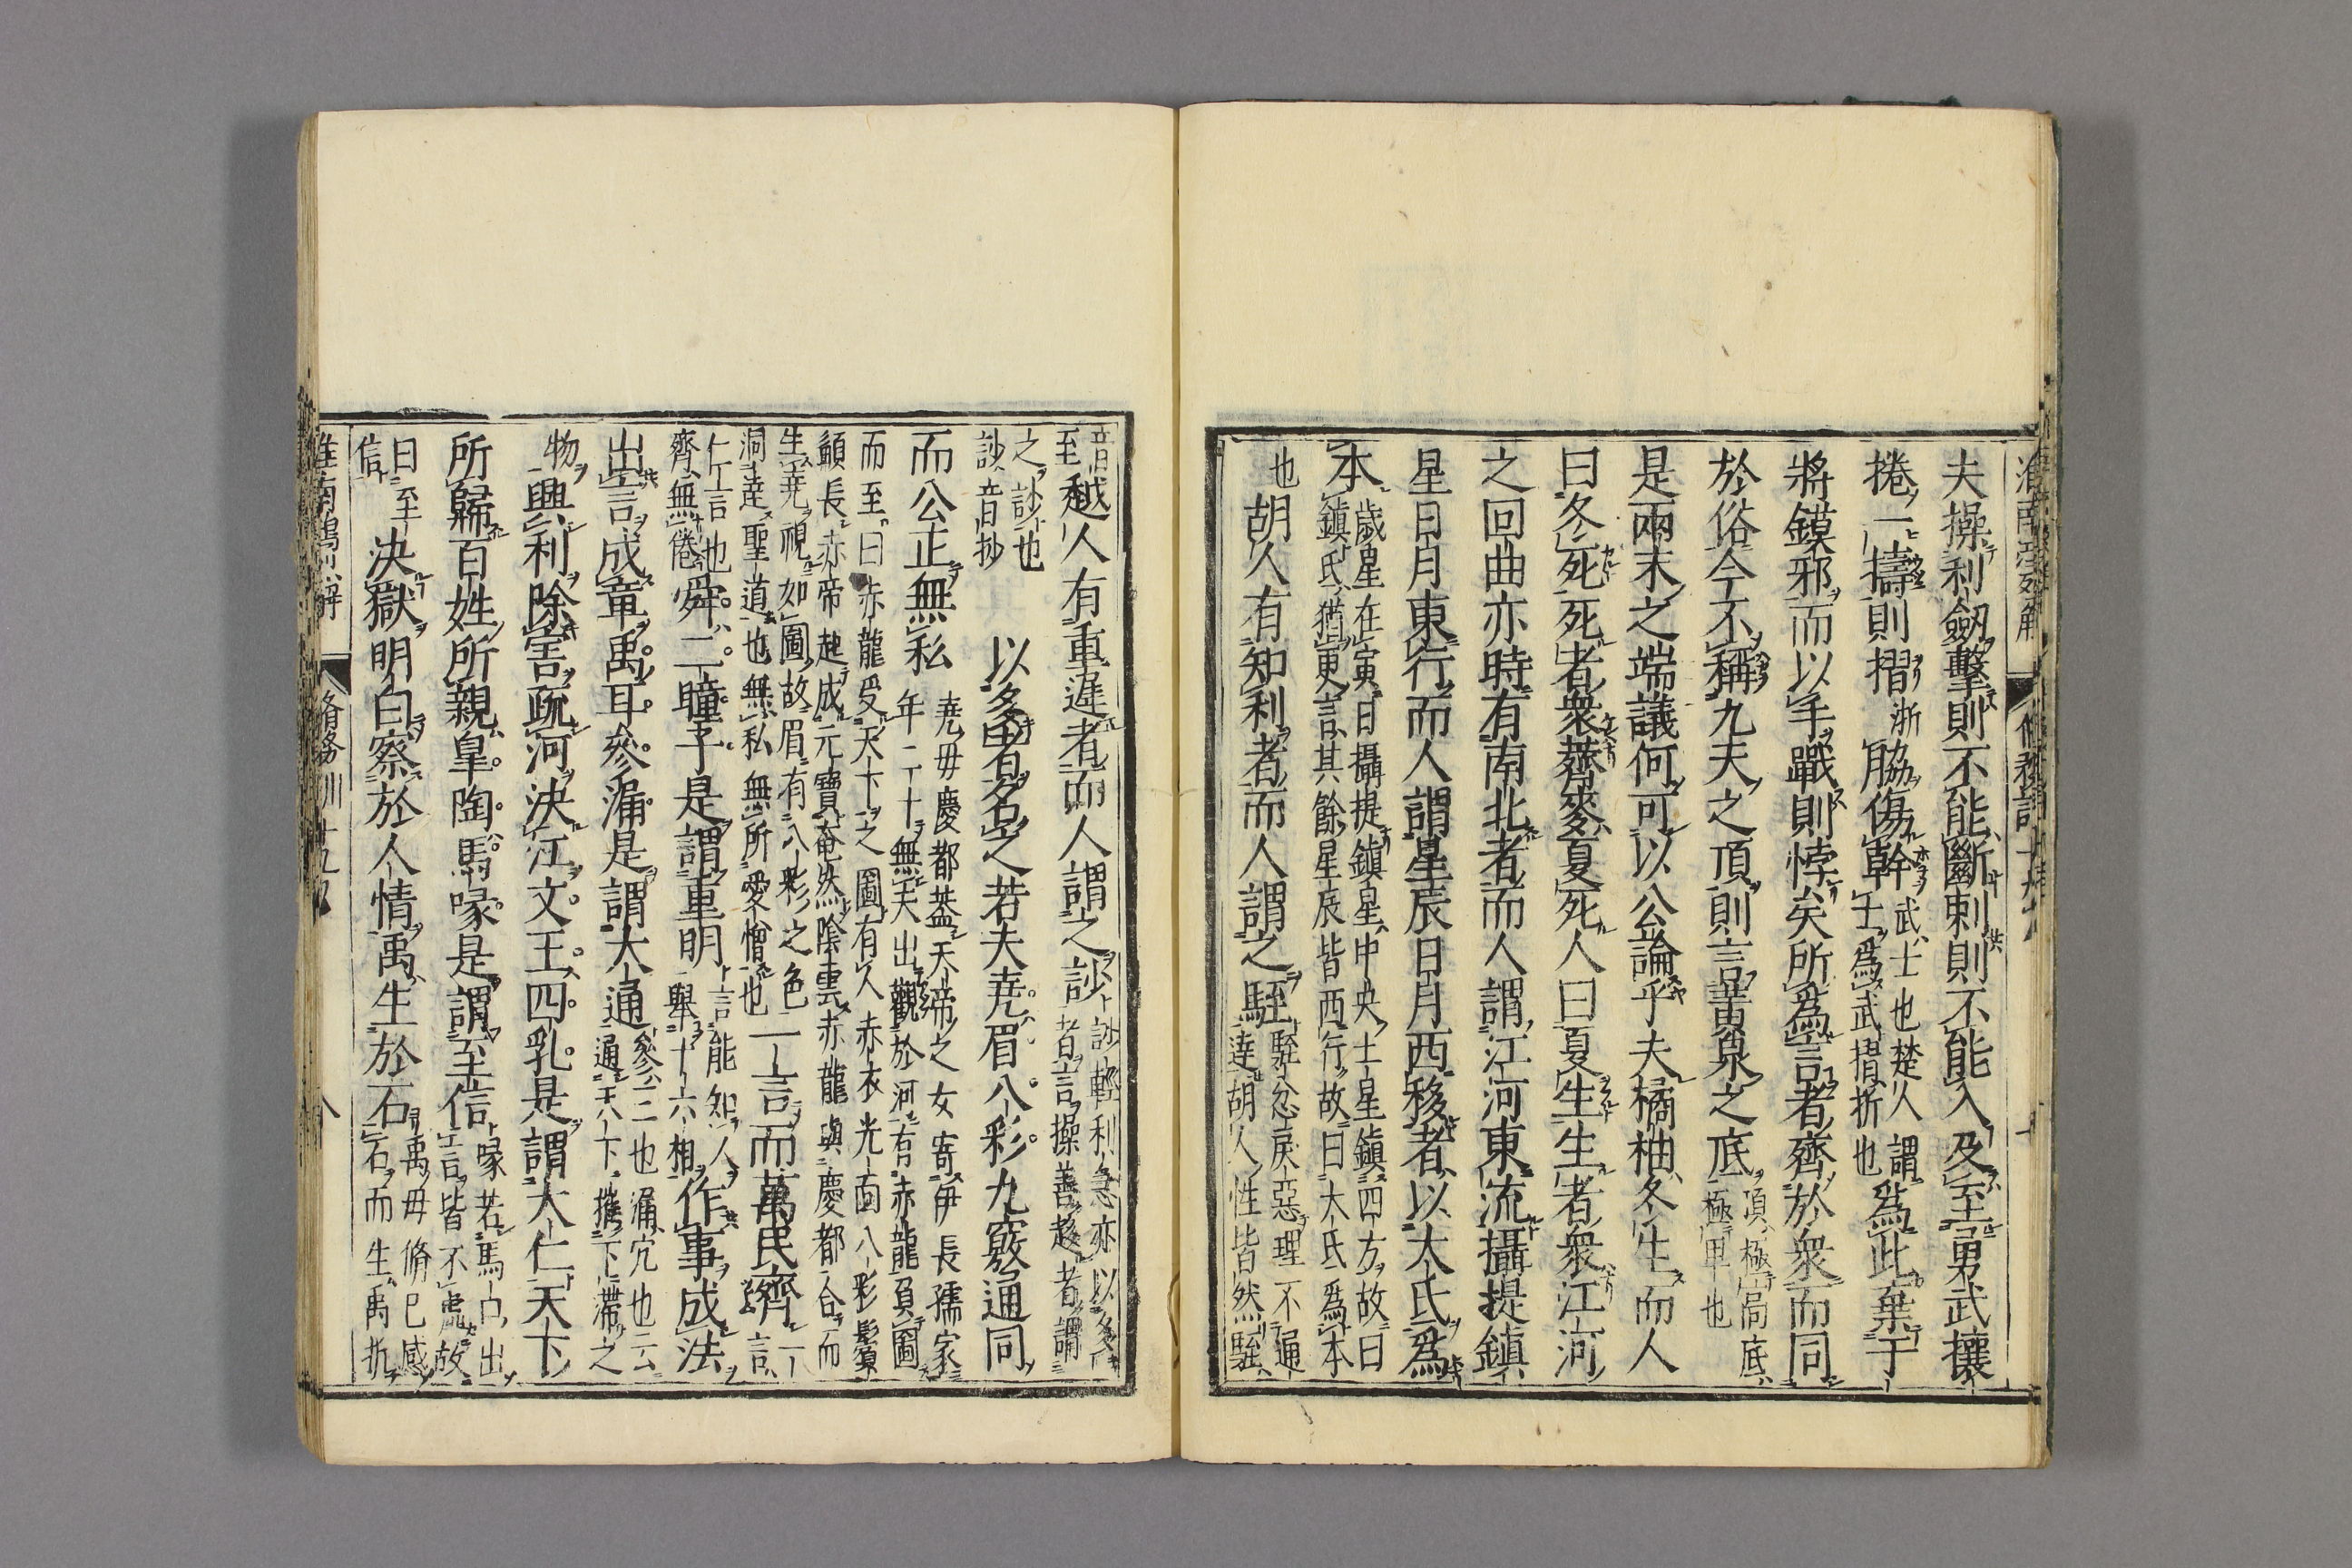 夫操利劔擊則不能斷刺則不能入及至勇武攘
捲一擣則摺脇傷幹
武士也楚人謂
士爲武摺折也
爲此棄干
將鏌邪而以手戰則悖矣所爲言者齊於衆而同
於俗今不稱九天之頂則言黃泉之底
頂極高底
極卑也
是兩末之端議何可以公論乎夫橘柚冬生而人
曰冬死死者衆薺麥夏死人曰夏生生者衆江河
之回曲亦時有南北者而人謂江河東流攝提鎮
星日月東行而人謂星辰日月西移者以大氏爲
本
歲星在寅曰攝提鎮星中央土星鎮四方故曰
鎮氏猶更言其餘星辰皆西行故曰大氏爲本
也
胡人有知利者而人謂之駤
駤忿戾惡理不通
達胡人性皆然駤
音
至
越人有重遲者而人謂之訬
訬輕利急亦以多
者言操善趍者謂
之訬也
訬音抄
以多者名之若夫堯眉八彩九竅通同
而公正無私
堯母慶都葢天帝之女寄伊長孺家
年二十無夫出觀於河有赤龍負圖
而至曰赤龍受天下之圖有人赤衣光面八彩鬢
顄長赤帝起成元寶奄然陰雲赤龍與慶都合而
生堯視如圖故眉有八彩之色
洞達聖道也無私無所愛憎也
一言而萬民齊
一言
仁言也
齊無倦
舜二瞳子是謂重明
言能知人
舉十六相
作事成法
出言成章禹耳參漏是謂大通
參三也漏穴也云
通天下摧下滯之
物
興利除害疏河決江文王四乳是謂大仁天下
所歸百姓所親皐陶馬喙是謂至信
喙若馬口出
言皆不虛故
曰至
信
決獄明白察於人情禹生於石
禹母脩已感
石而生禹折
修務訓十九